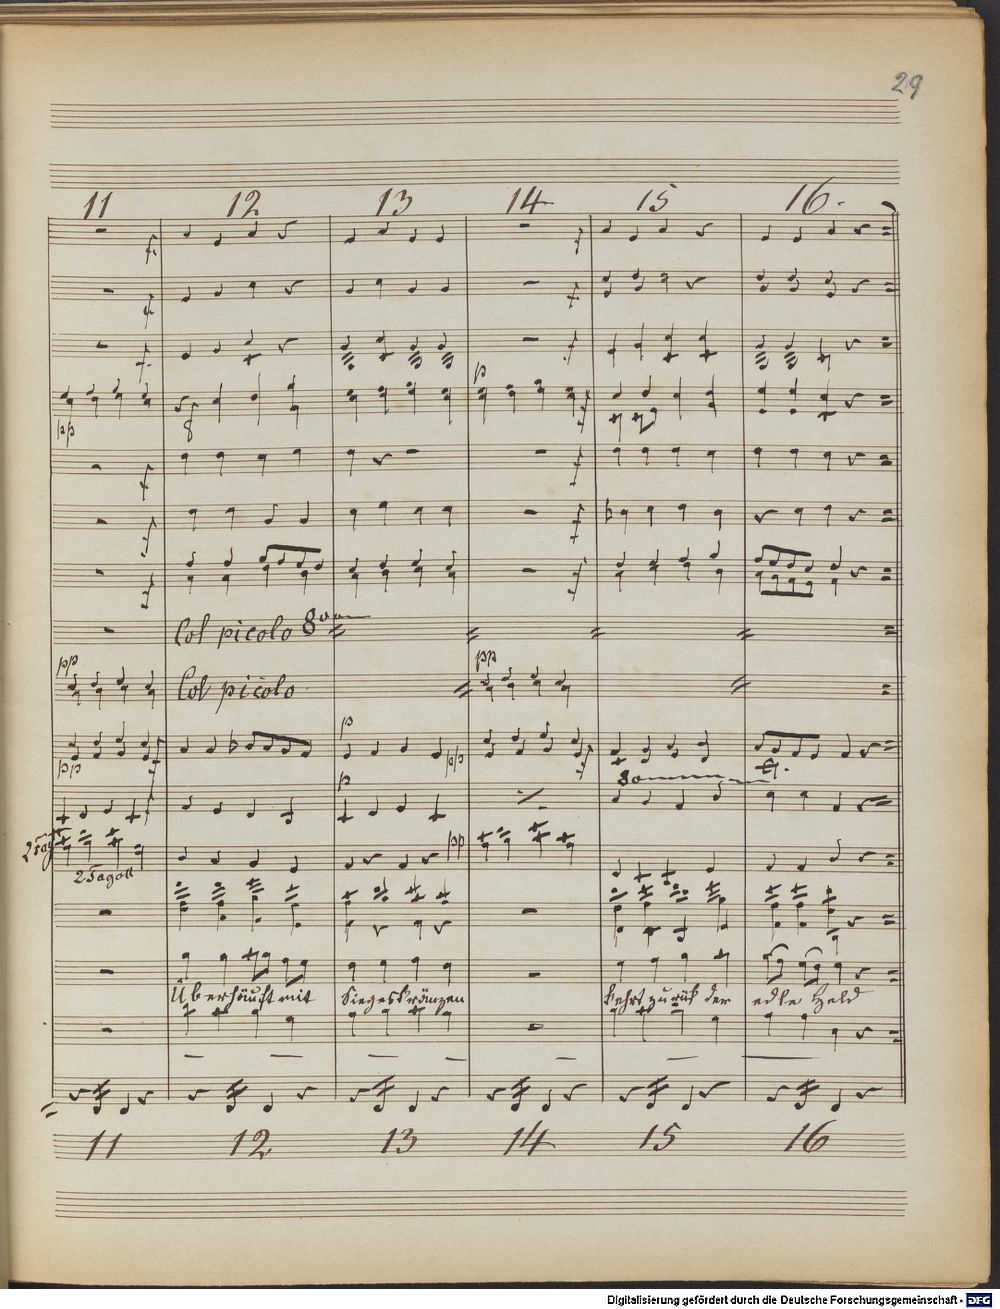 29
11 12 13 14 15 16.
f. f f f
p
pp
Col picolo 8
pp pp
Col picolo
p
pp pp
p
pp
2 Fagott
Überhäuft mit Siegeskränzen kehrt zurük der edle Held
11 12 13 14 15 16
Digitalisierung gefördert durch die Deutsche Forschungsgemeinschaft - DFG